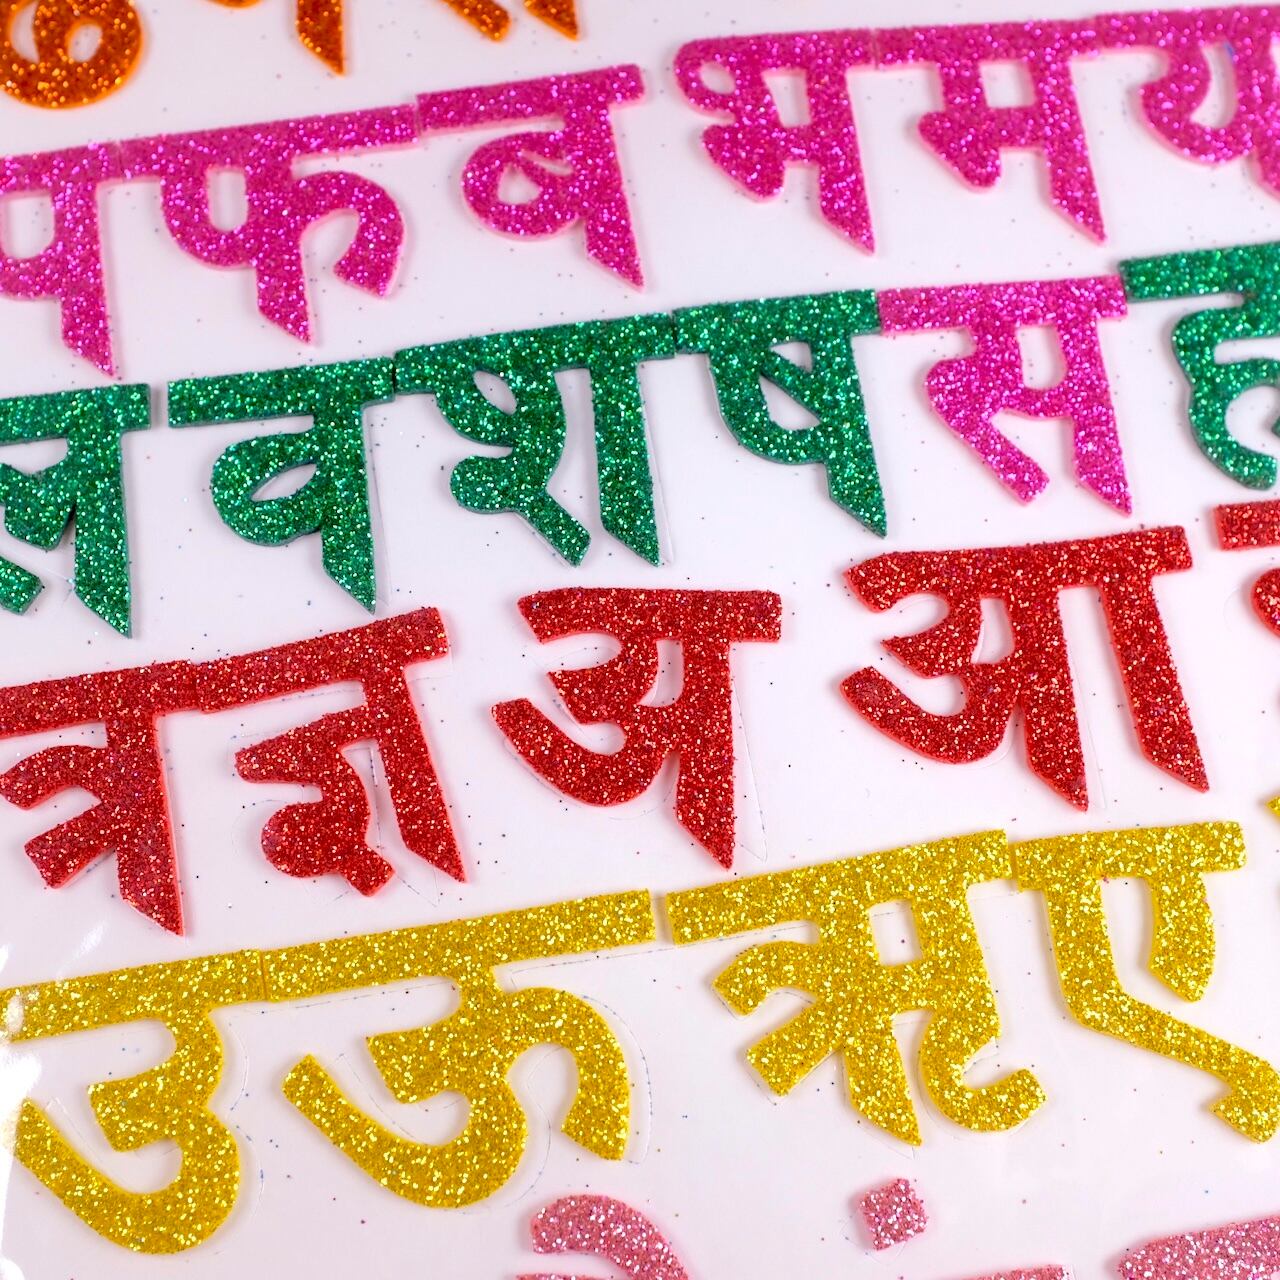 प फ ब भ म य
ल व श ष स ह
त्र ज्ञ अ आ
उ ऊ ऋ ए